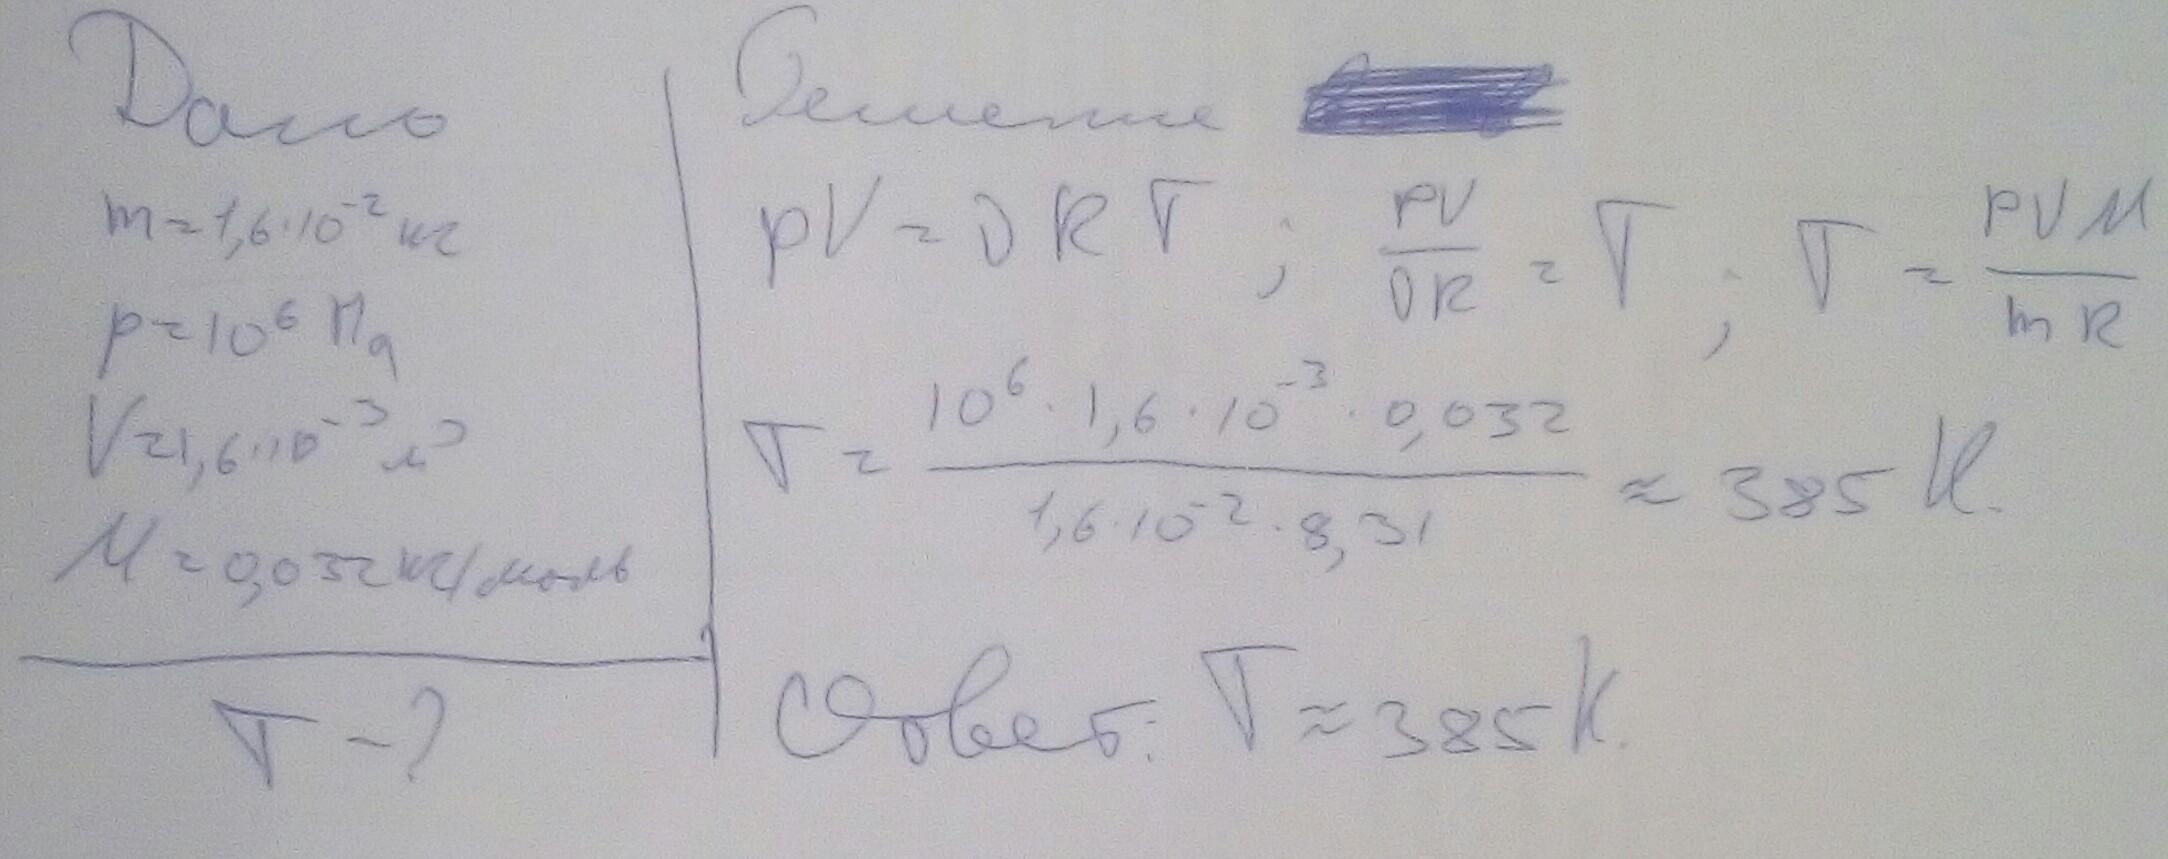 Дано
m=1,6·10⁻² кг
p=10⁶ Па
V=1,6·10⁻³ м³
M=0,032 кг/моль
T-?
Решение
pV=νRT; PV/νR=T; T=PVM/mR
T=10⁶·1,6·10⁻³·0,032/1,6·10⁻²·8,31≈385 К.
Ответ: T≈385 К.